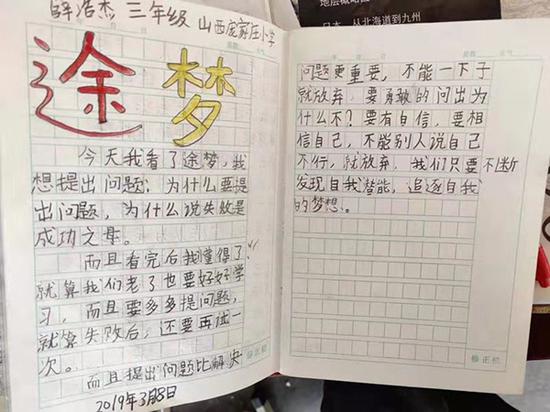 薛浩杰 三年级 山西庞家庄小学
途梦
今天我看了途梦,我
想提出问题:为什么要提
出问题,为什么说失败是
成功之母。
而且看完后我懂得了
就算我们老了也要好好学
习,而且要多多提问题,
就算失败后,还要再试一
次。
而且提出问题比解决
2019年3月8日
问题更重要,不能一下子
就放弃,要勇敢的问出为
什么不?要有自信,要相
信自己,不能别人说自己
不行,就放弃,我们只要不断
发现自我潜能,追逐自我
的梦想。
正松
正松
日本 从北海道到九州